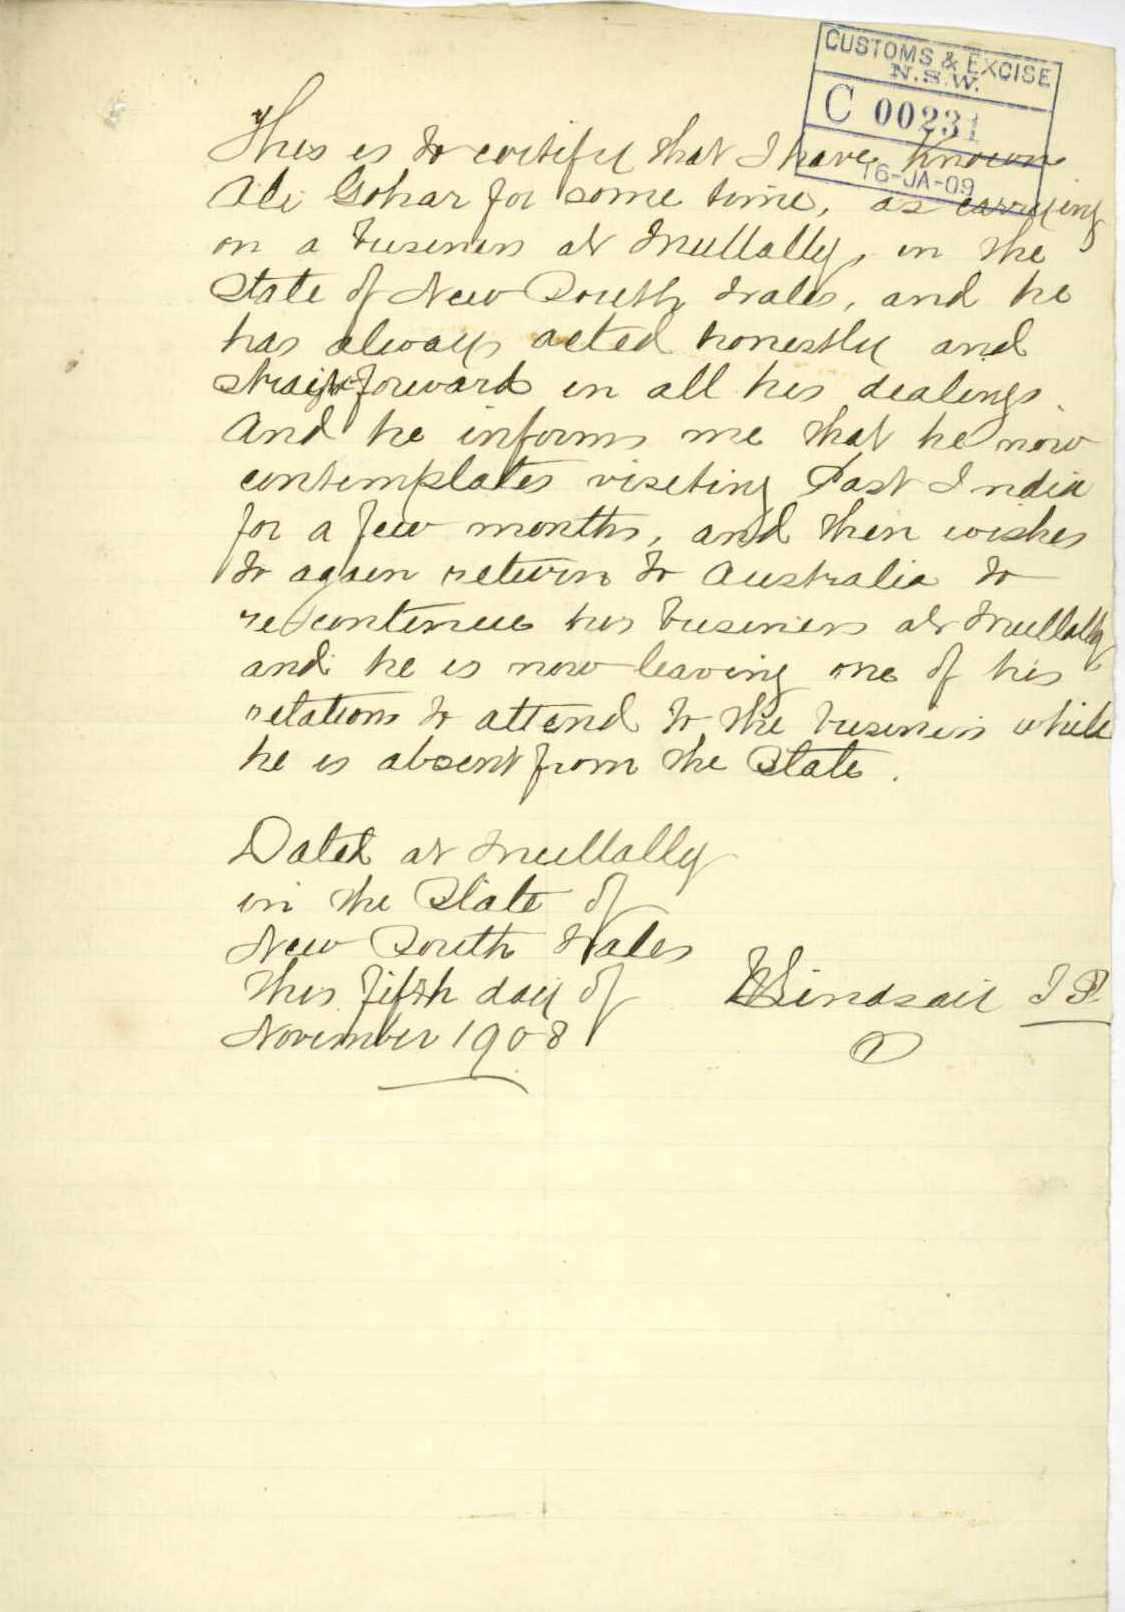 CUSTOMS & EXCISE
N.S.W.
C 00231
16-JA-09
This is to certify that I have known
Ali Gohar for some time, as carrying
on a business at Mullally, in the
State of New South Wales, and he
has always acted honestly and
straightforward in all his dealings.
And he informs me that he now
contemplates visiting East India
for a few months, and then wishes
to again return to Australia to
recontinue his business at Mullally
and he is now leaving one of his
relations to attend to the business while
he is absent from the State.
Dated at Mullally
in the State of
New South Wales
this fifth day of
November 1908
Lindsay JP